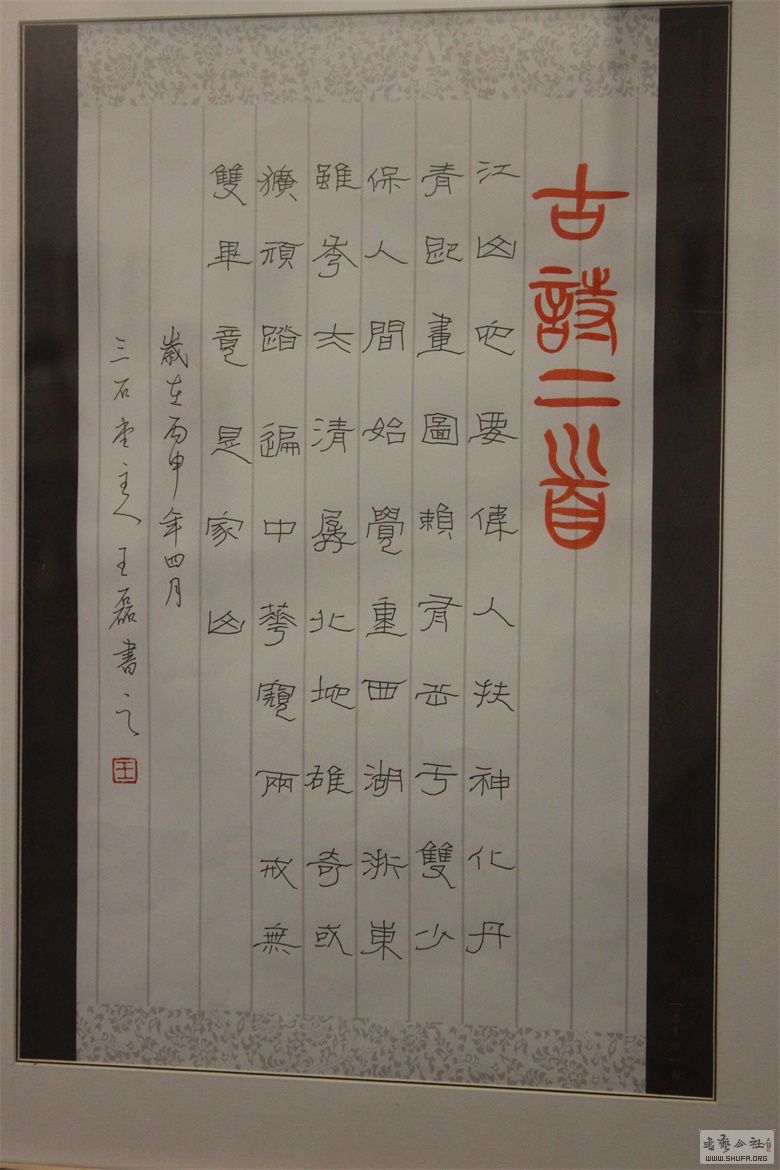 古詩二首
江山也要偉人扶神化丹
青即畫圖賴有岳于雙少
保人間始覺重西湖浙東
雖秀太清孱北地雄奇或
獷頑踏遍中華窺兩戒無
雙畢竟是家山
歲在丙申年四月
三石堂主人王磊書之
王
書藝公社
WWW.SHUFA.ORG